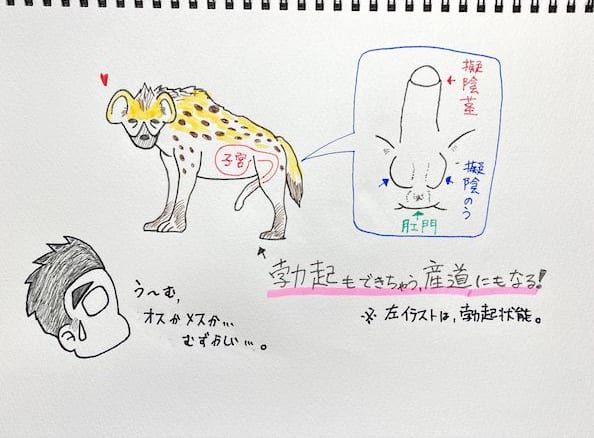 擬陰茎
子宮
擬陰のう
肛門
勃起もできちゃう,産道にもなる!
※左イラストは,勃起状態。
う～む,
オスかメスか…
むずかしい…。